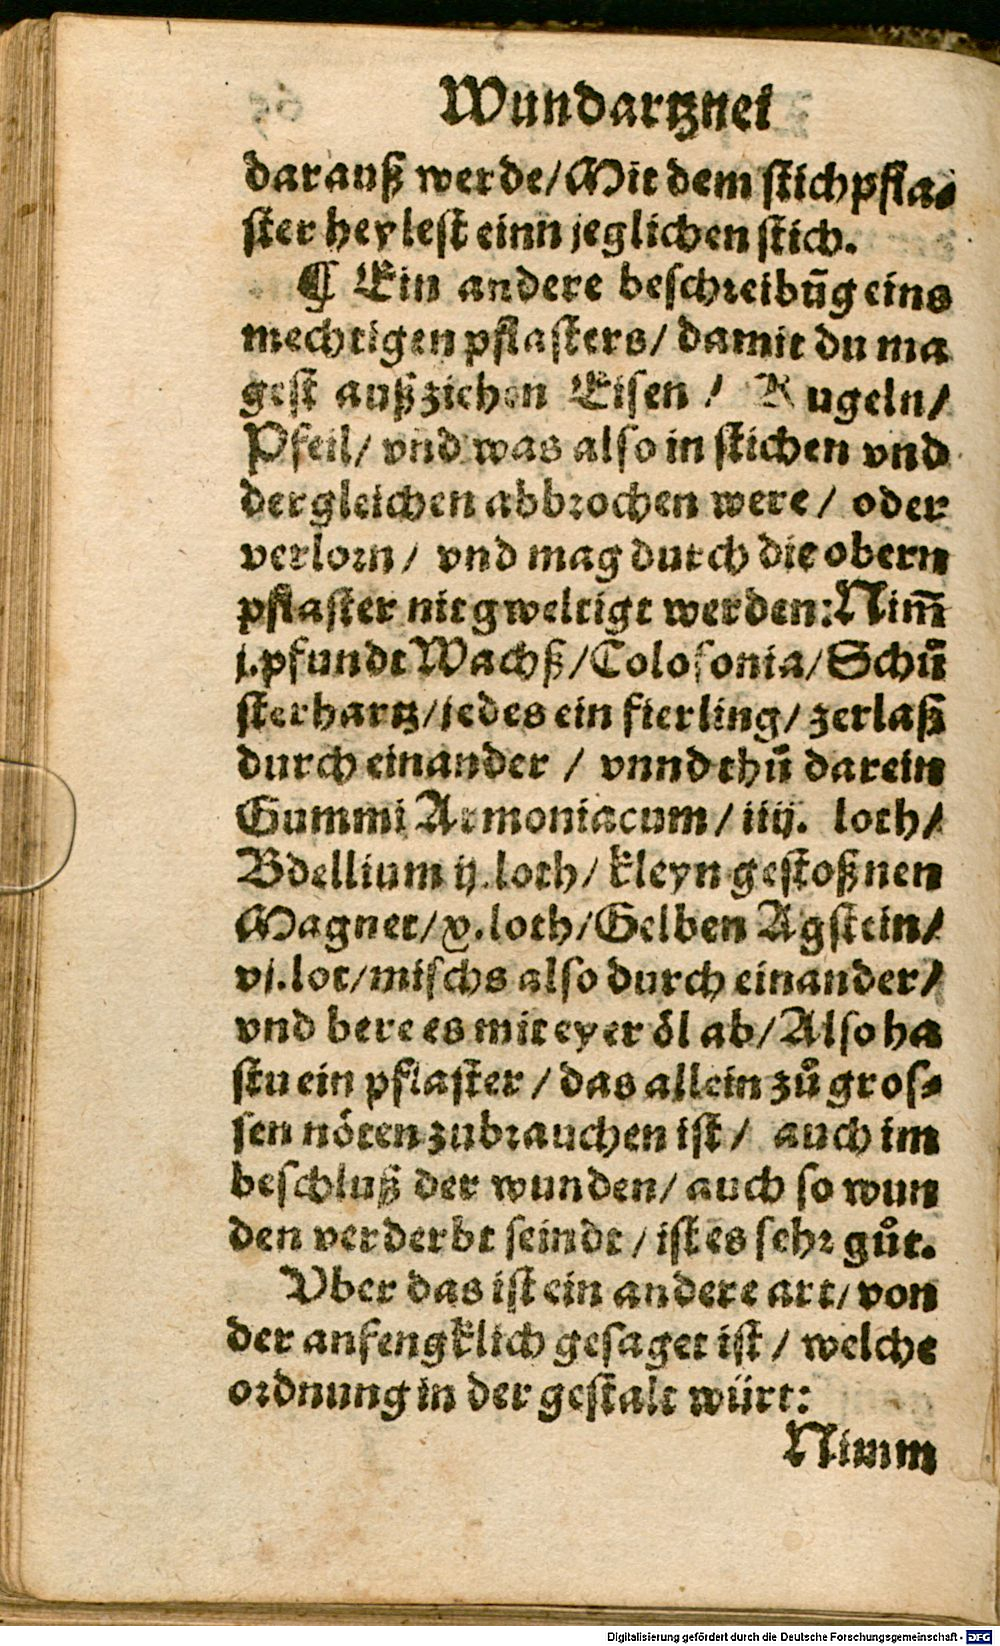 Wundartznei
darauß werde/Mit dem stichpfla-
ster heylest einn jeglichen stich.
¶ Ein andere beschreibūg eins
mechtigen pflasters/ damit du ma
gest außziehen Eisen / Kugeln/
Pfeil/ vnd was also in stichen vnd
dergleichen abbrochen were / oder
verlorn / vnd mag durch die obern
pflaster nit gweltigt werden:Nim̄
j.pfundt Wachß/Colofonia/Schů
sterhartz/jedes ein fierling/ zerlaß
durch einander / vnnd thů darein
Gummi Armoniacum/ iiij. loth/
Bdellium ij.loth/ kleyn gestoßnen
Magnet/v.loth/Gelben Agstein/
vj.lot/mischs also durch einander/
vnd bere es mit eyer öl ab/Also ha
stu ein pflaster / das allein zů gros-
sen nöten zubrauchen ist / auch im
beschluß der wunden/ auch so wun
den verderbt seindt / ist es sehr gůt.
Vber das ist ein andere art/ von
der anfengklich gesaget ist / welche
ordnung in der gestalt würt:
Nimm
Digitalisierung gefördert durch die Deutsche Forschungsgemeinschaft - DFG